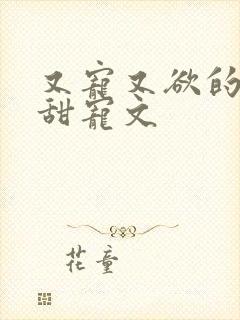 又寵又欲的
甜寵文
花童